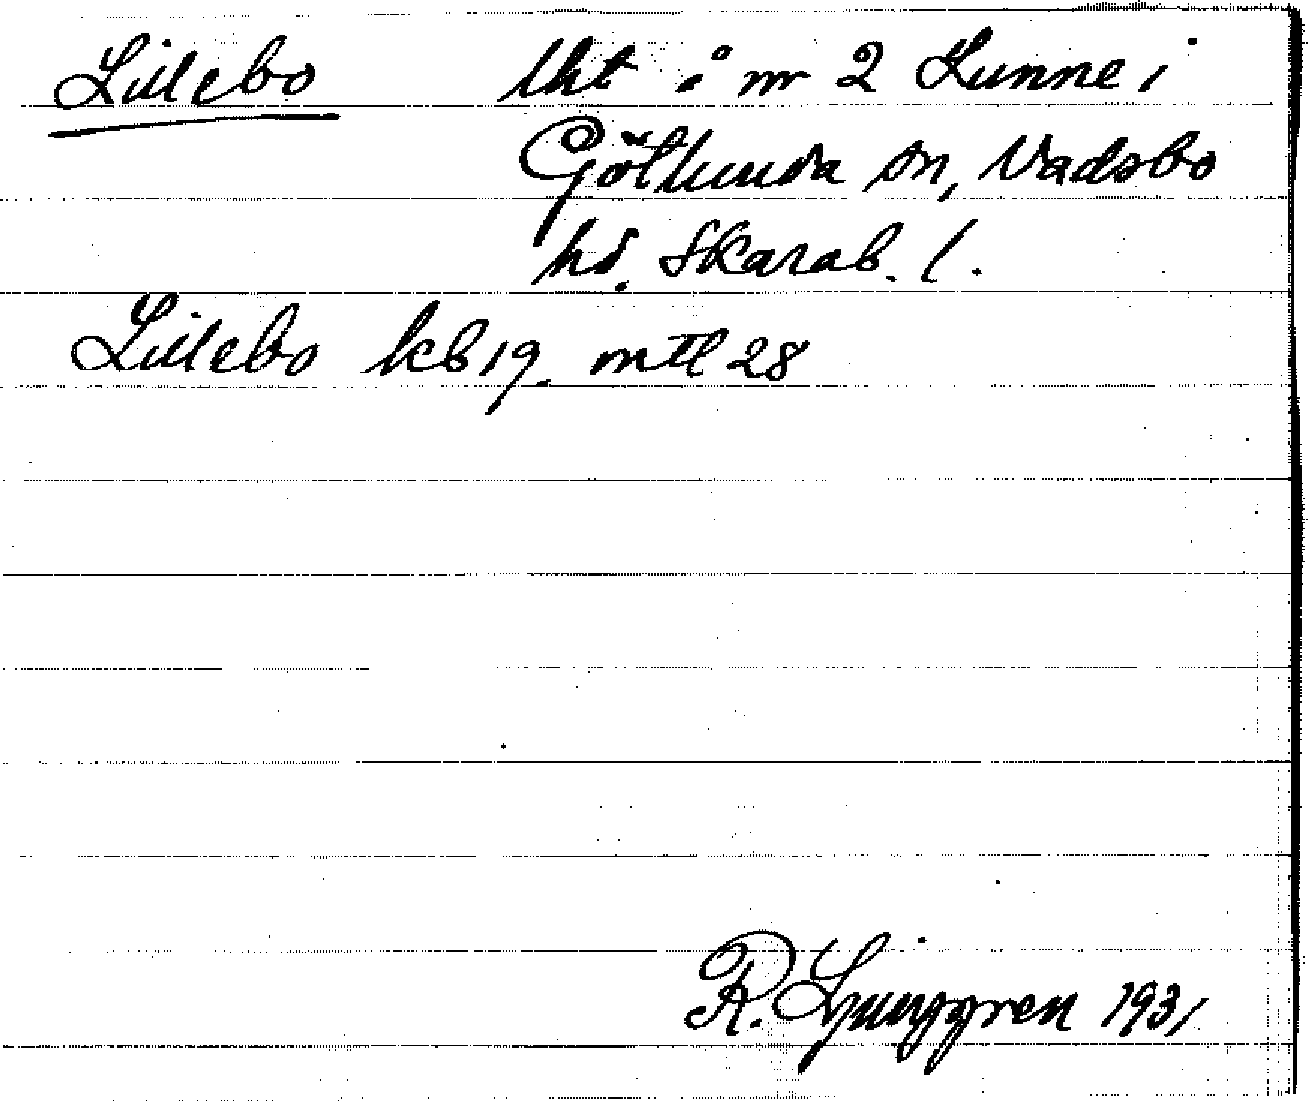 Lillebo lht å nr 2 Lunne i
Götlunda sn, Vadsbo
hd. Skarab. l.
Lillebo kb 19. mtl 28
R. Ljunggren 1931